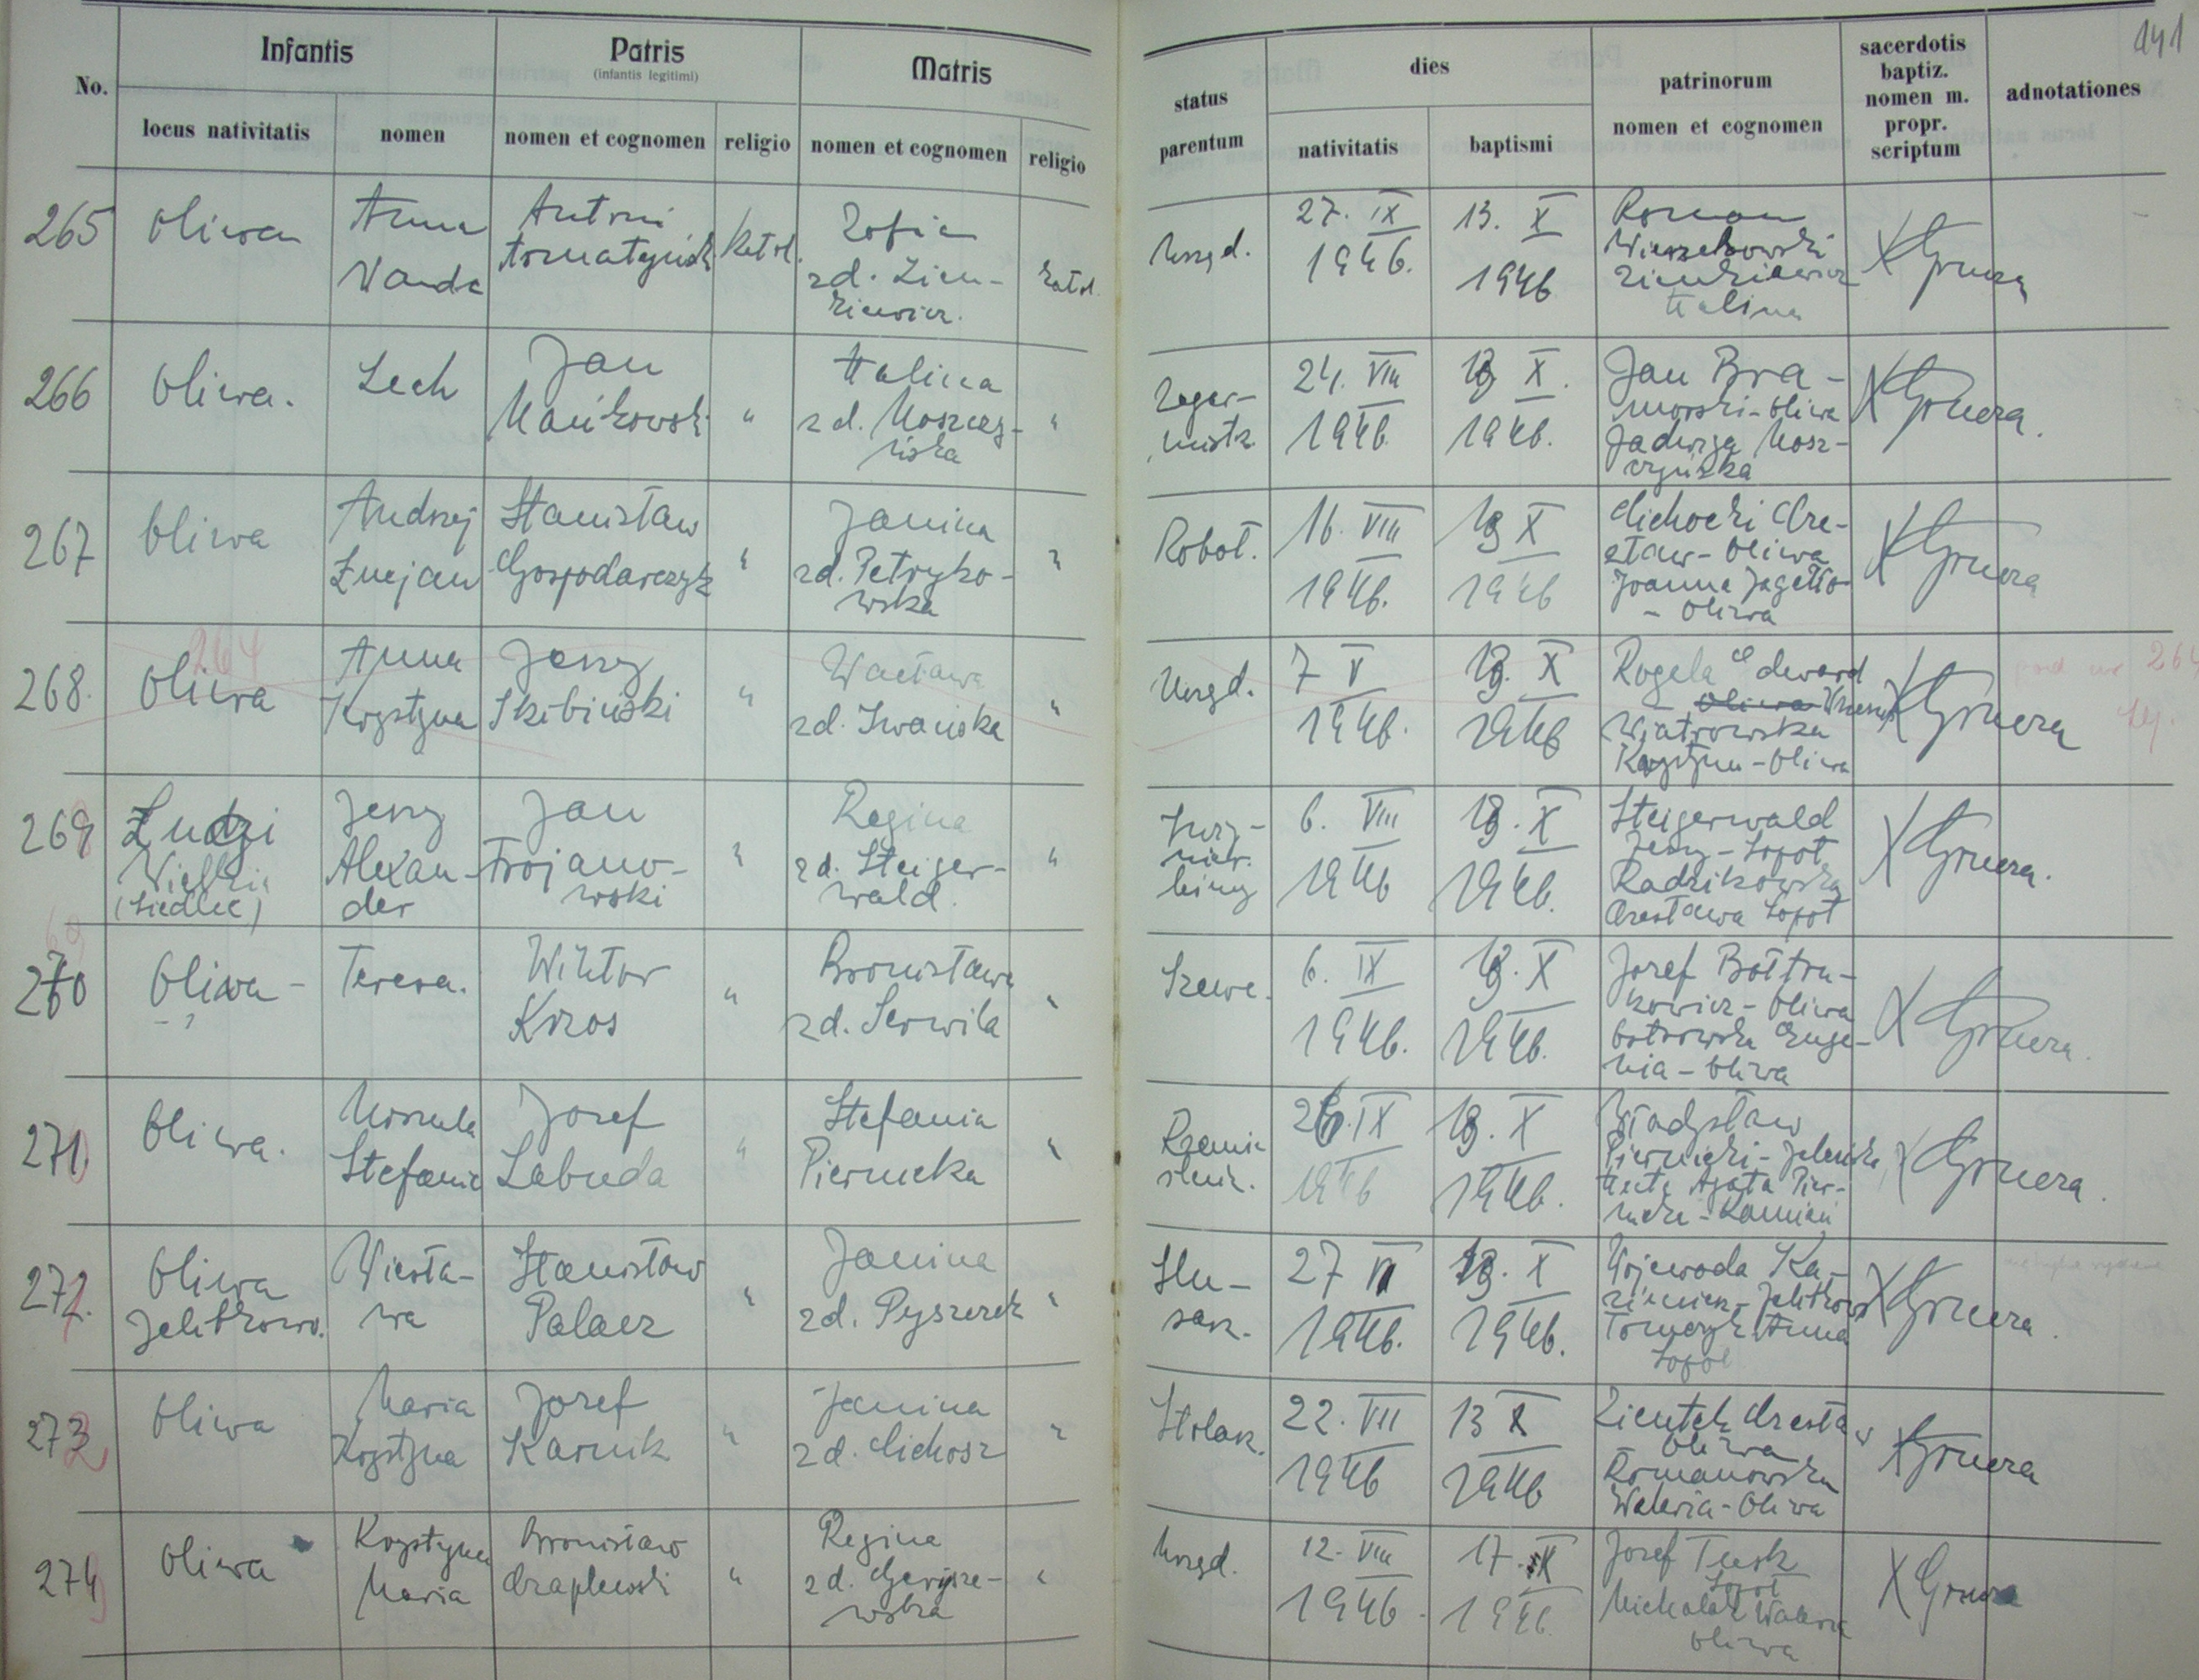 141
No.
Infantis
Patris
(infantis legitimi)
Matris
locus nativitatis
nomen
nomen et cognomen
religio
nomen et cognomen
religio
status
parentum
dies
nativitatis
baptismi
patrinorum
nomen et cognomen
sacerdotis
baptiz.
nomen m.
propr.
scriptum
adnotationes
265
Oliwa
Anna
Wanda
Antoni
katol.
Zofia
zd. Zien-
kiewicz.
katol.
Urzęd.
27. IX
1946.
13. X
1946
Roman
Zienkiewicz
Halina
X Gruera
266
Oliwa.
Lech
Jan
Mańkowski
"
Halina
zd. Moszczy-
ńska
"
24. VIII
1946.
13 X.
1946.
Jan Bra-
morski - Oliwa
Jadwiga Mosz-
czyńska
X Gruera.
267
Oliwa
Andrzej
Łucjan
Stanisław
Gospodarczyk
"
Janina
zd. Petryko-
wska
"
Robot.
16. VIII
1946.
13 X
1946
Cichocki Cze-
sław - Oliwa
Joanna Jagiełło
- Oliwa
X Gruera
268.
264
Oliwa
Anna
Krystyna
Jerzy
Skibiński
"
Wacława
zd. Iwańska
"
Urzęd.
7 V
1946.
13. X
1946
Rogela Edward
Oliwa
Wiatrowska
Krystyna - Oliwa
X Gruera
pod nr 264
269
Łudzi
Wielkiej
(Siedlec)
Jerzy
Alexan-
der
Jan
Trojano-
wski
"
Regina
zd. Steiger-
wald.
"
6. VIII
1946
13. X
1946.
Steigerwald
Jerzy - Sopot
Radzikowska
Czesława Sopot
X Gruera.
270
Oliwa -
Teresa.
Wiktor
Kozos
"
Bronisława
zd. Serwila
"
Szewc.
6. IX
1946.
13. X
1946.
Jozef Bołtru-
kowicz - Oliwa
Ostrowska Euge-
nia - Oliwa
X Gruera.
271
Oliwa.
Urszula
Stefania
Jozef
Labuda
"
Stefania
Piernicka
"
Rzemie
ślnik.
26. IX
1946
13. X
1946.
Władysław
Piernicki -
Agata Pier-
nicka - Kamień
X Gruera.
272.
Oliwa
Jelitkowo.
Wiesła-
wa
Stanisław
Palacz
"
Janina
zd. Pyszczek
"
Ślu-
sarz.
27 VI
1946.
13. X
1946.
Wojewoda Ka-
zimierz - Jelitkowo
Tomczyk Anna
Sopot
X Gruera.
273
Oliwa
Maria
Krystyna
Jozef
Karnik
"
Janina
zd. Cichosz
"
Stolarz.
22. VII
1946
13 X
1946
Zientek Czesław
Oliwa
Romanowska
Waleria - Oliwa
X Gruera
274
Oliwa
Krystyna
Maria
Bronisław
Czaplewski
"
Regina
zd. Gerysze-
wska
"
Urzęd.
12. VIII
1946.
17. X
1946.
Jozef Tusk
Sopot
Michalak Waleria
Oliwa
X Gruera